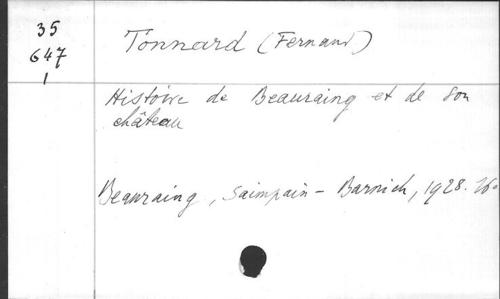 35
647
1
Tonnard (Fernand)
Histoire de Beauraing et de son
château
Beauraing, Saimpain - Barnich, 1928.